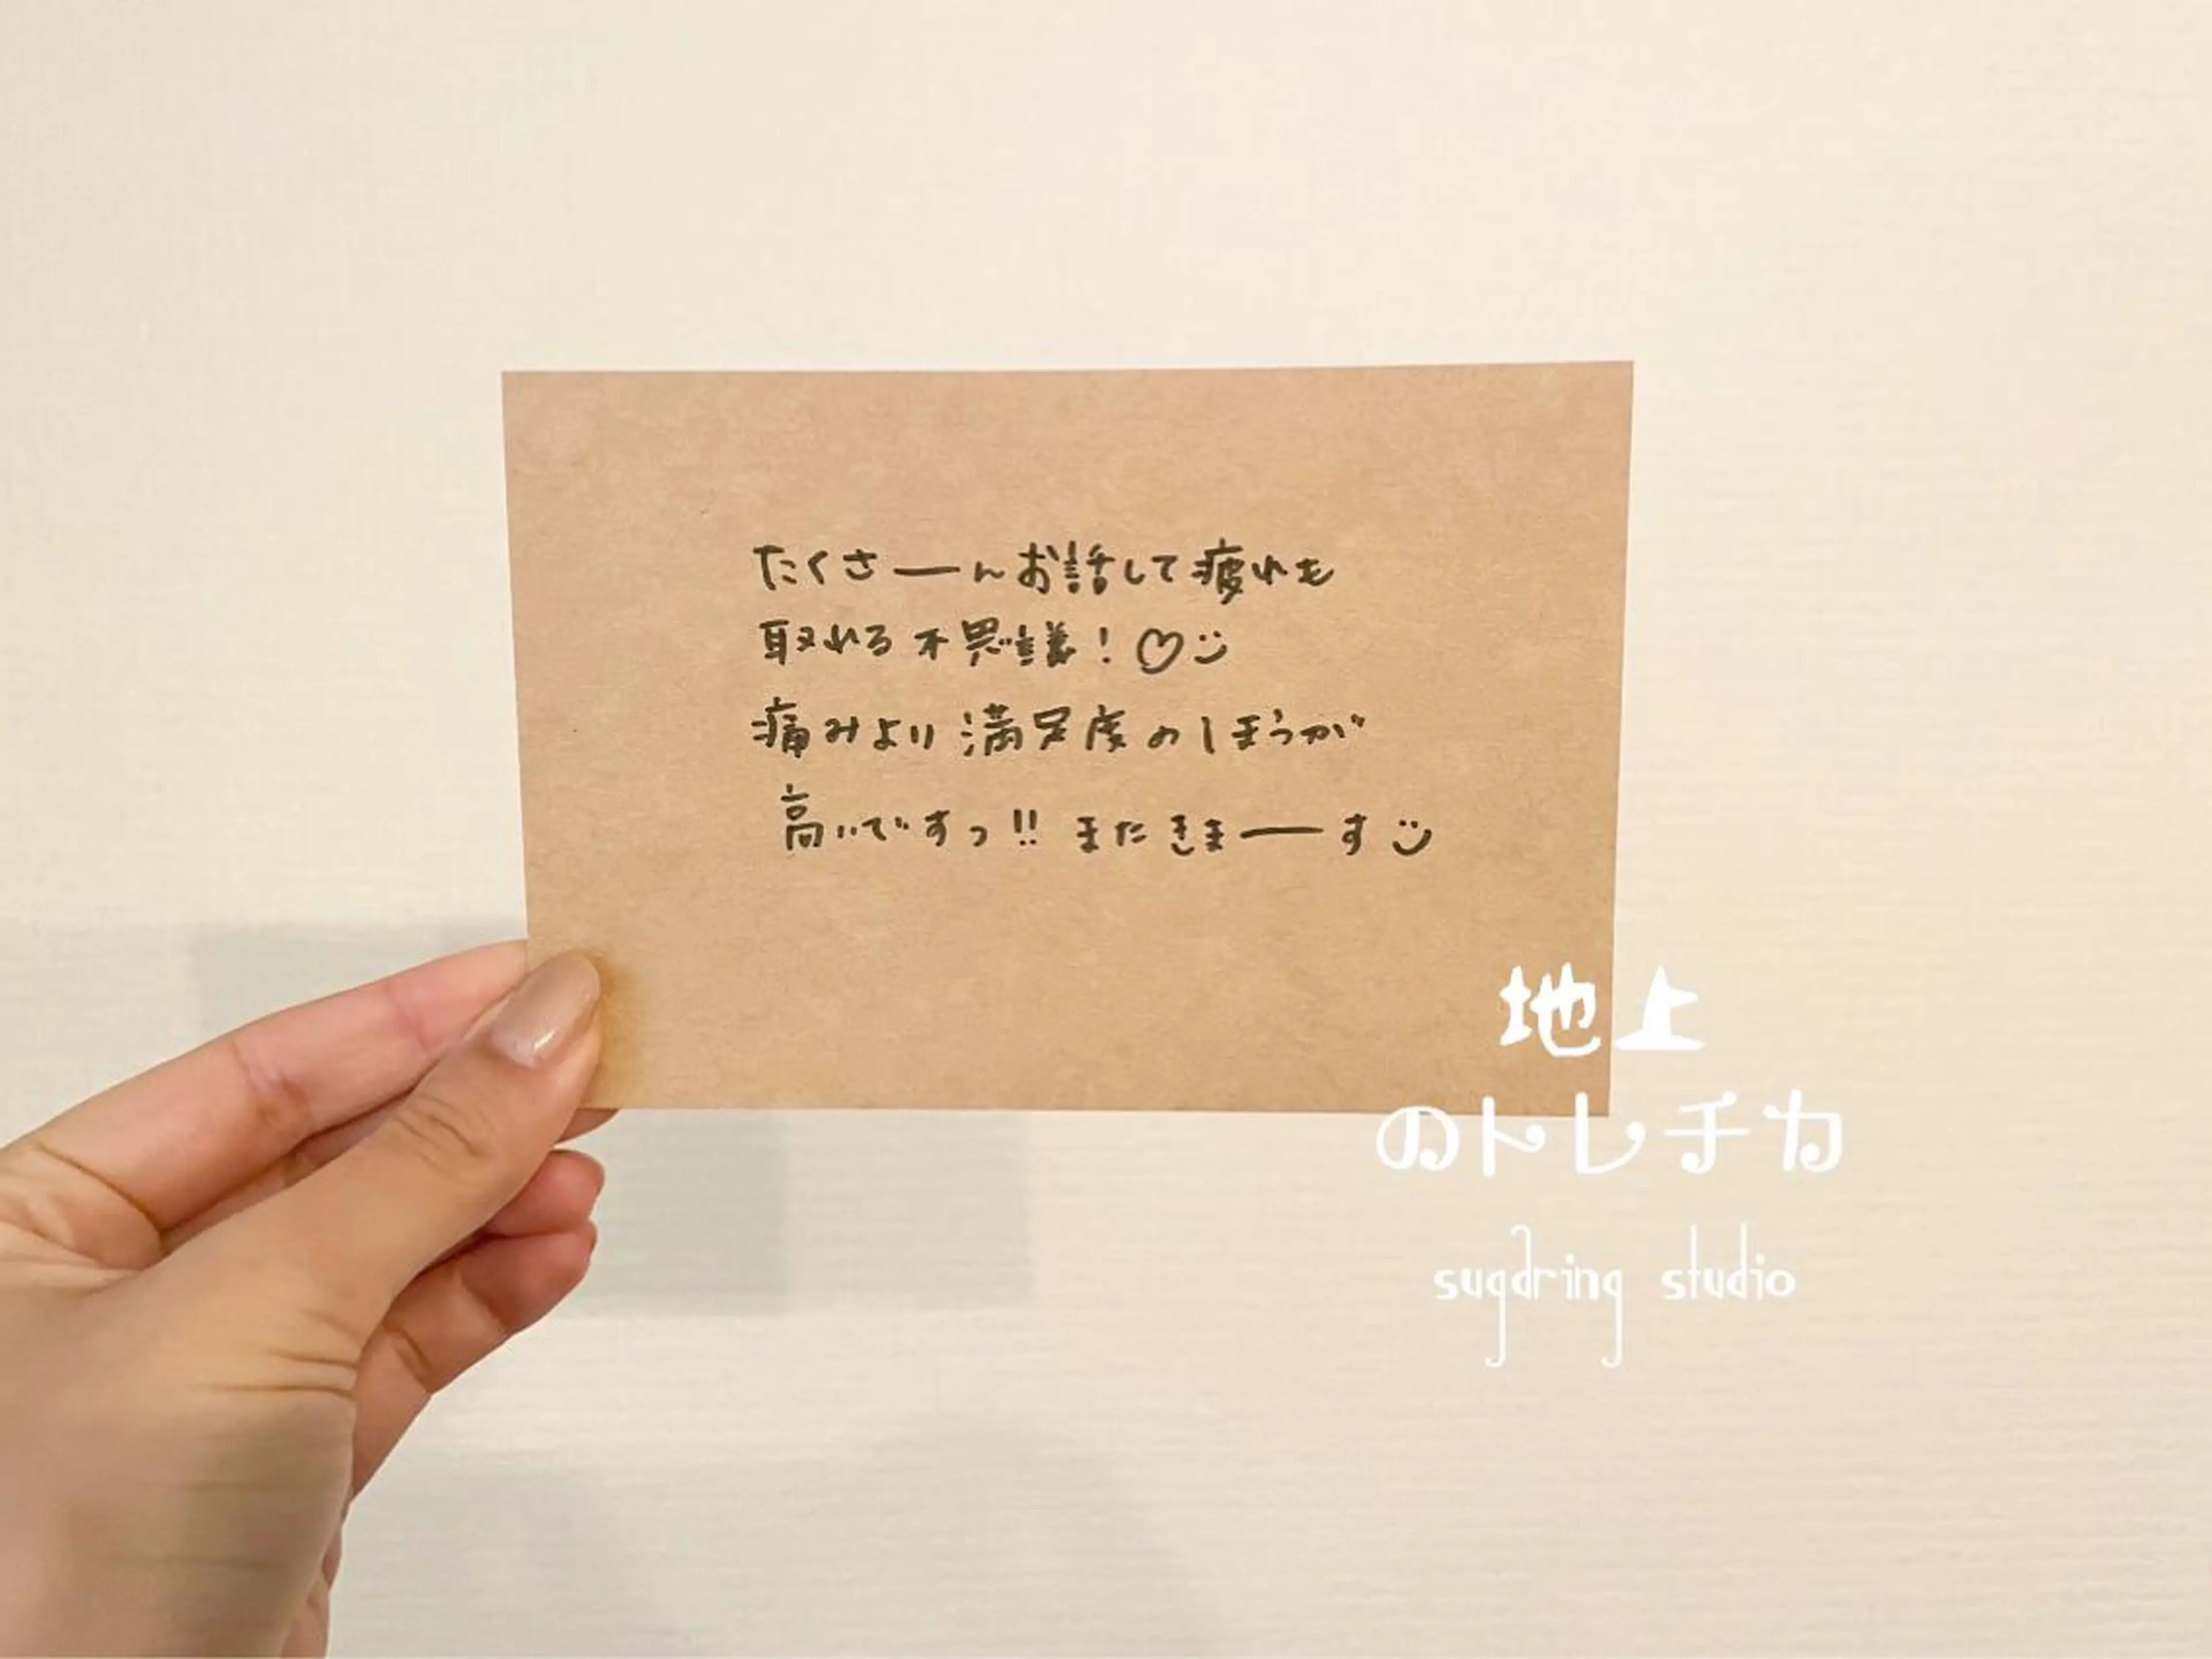 たくさーーん お話して 疲れも
取れる 不思議！♡
痛みより 満足度のほうが
高いですっ!! またきまーーす
地上
のトレチカ
sugaring studio